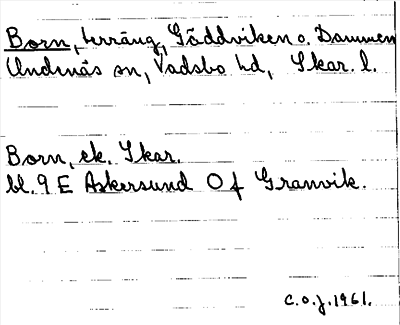 Born, terräng, Göddviken o. Dammen
Undenäs sn, Vadsbo hd, Skar. l.
Born, ek. Skar.
bl. 9 E Askersund O f Granvik.
C.O.J. 1961.